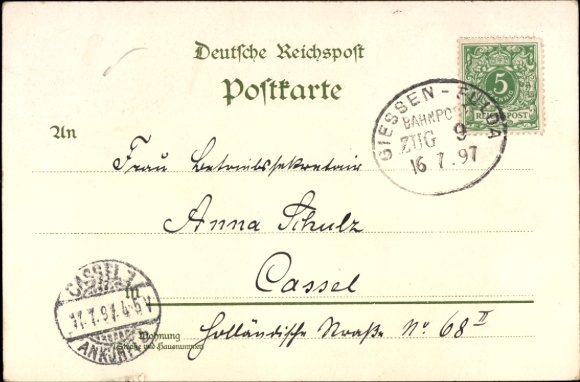 Deutsche Reichspost
Postkarte
5
REICHSPOST
GIESSEN - FULDA
BAHNPOST
ZUG 9
16 7.97
An
Frau Betriebssekretair
Anna Schulz
in Cassel
CASSEL 1
17.7.97. 4-5 V
ANKUNFT
Wohnung
(Straße und Hausnummer)
Holländische Straße No 68 II